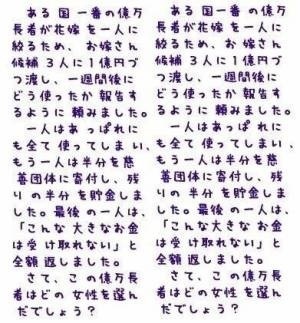 ある国一番の億万
長者が花嫁を一人に
絞るため、お嫁さん
候補３人に１億円づ
つ渡し、一週間後に
どう使ったか報告す
るように頼みました。
一人はあっぱれに
も全て使ってしまい、
もう一人は半分を慈
善団体に寄付し、残
りの半分を貯金しま
した。最後の一人は、
「こんな大きなお金
は受け取れない」と
全額返しました。
さて、この億万長
者はどの女性を選ん
だでしょう？
ある国一番の億万
長者が花嫁を一人に
絞るため、お嫁さん
候補３人に１億円づ
つ渡し、一週間後に
どう使ったか報告す
るように頼みました。
一人はあっぱれに
も全て使ってしまい、
もう一人は半分を慈
善団体に寄付し、残
りの半分を貯金しま
した。最後の一人は、
「こんな大きなお金
は受け取れない」と
全額返しました。
さて、この億万長
者はどの女性を選ん
だでしょう？